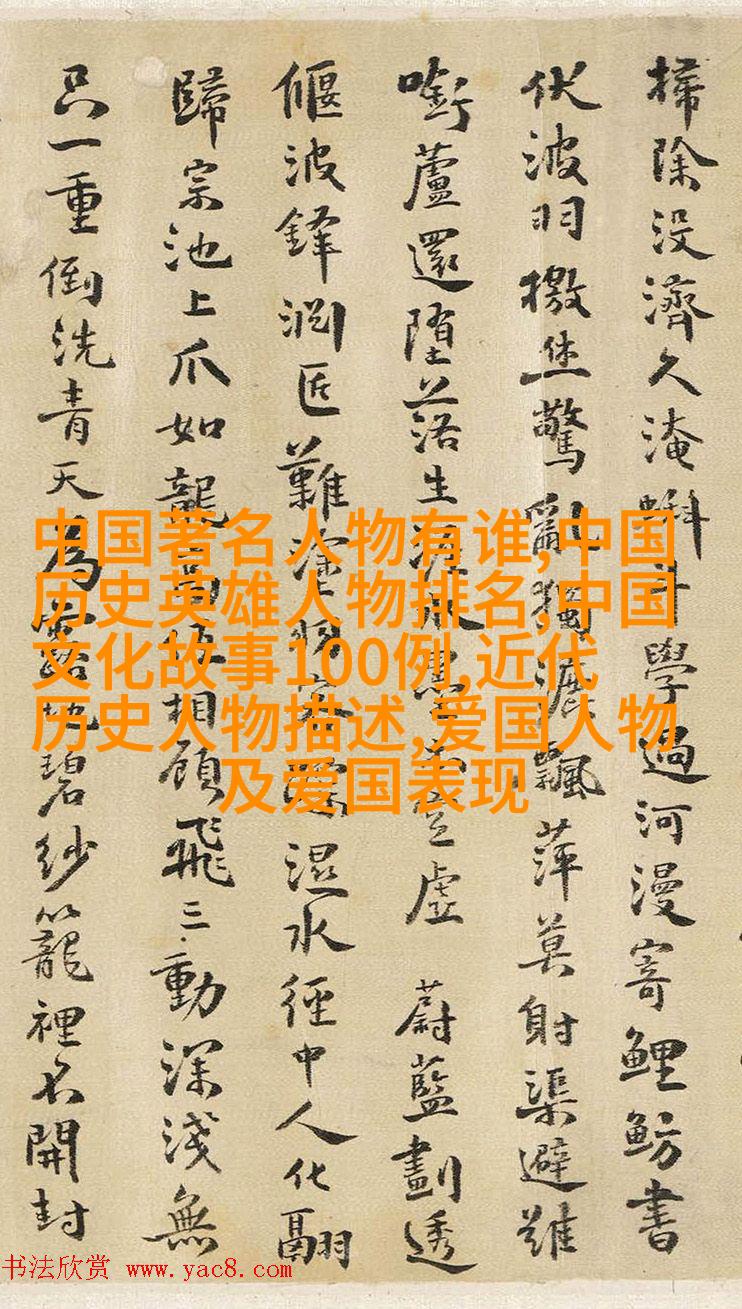 掃除没濟久淹蝌斗學過河漫寄鯉魴書
伏波羽檄生驚亂獨漉飄萍莫射渠避雄
啣蘆還墮落生虚 蔚藍劃透
偃波鋒澗匠難濕水徑中人化翮
歸宗池上爪如龍相顧飛三動深淺無
只一重倒洗青天為露地碧紗籠裡不開封
中国著名人物有谁,中国
历史英雄人物排名,中国
文化故事100例,近代
历史人物描述,爱国人物
及爱国表现
书法欣赏 www.yac8.com